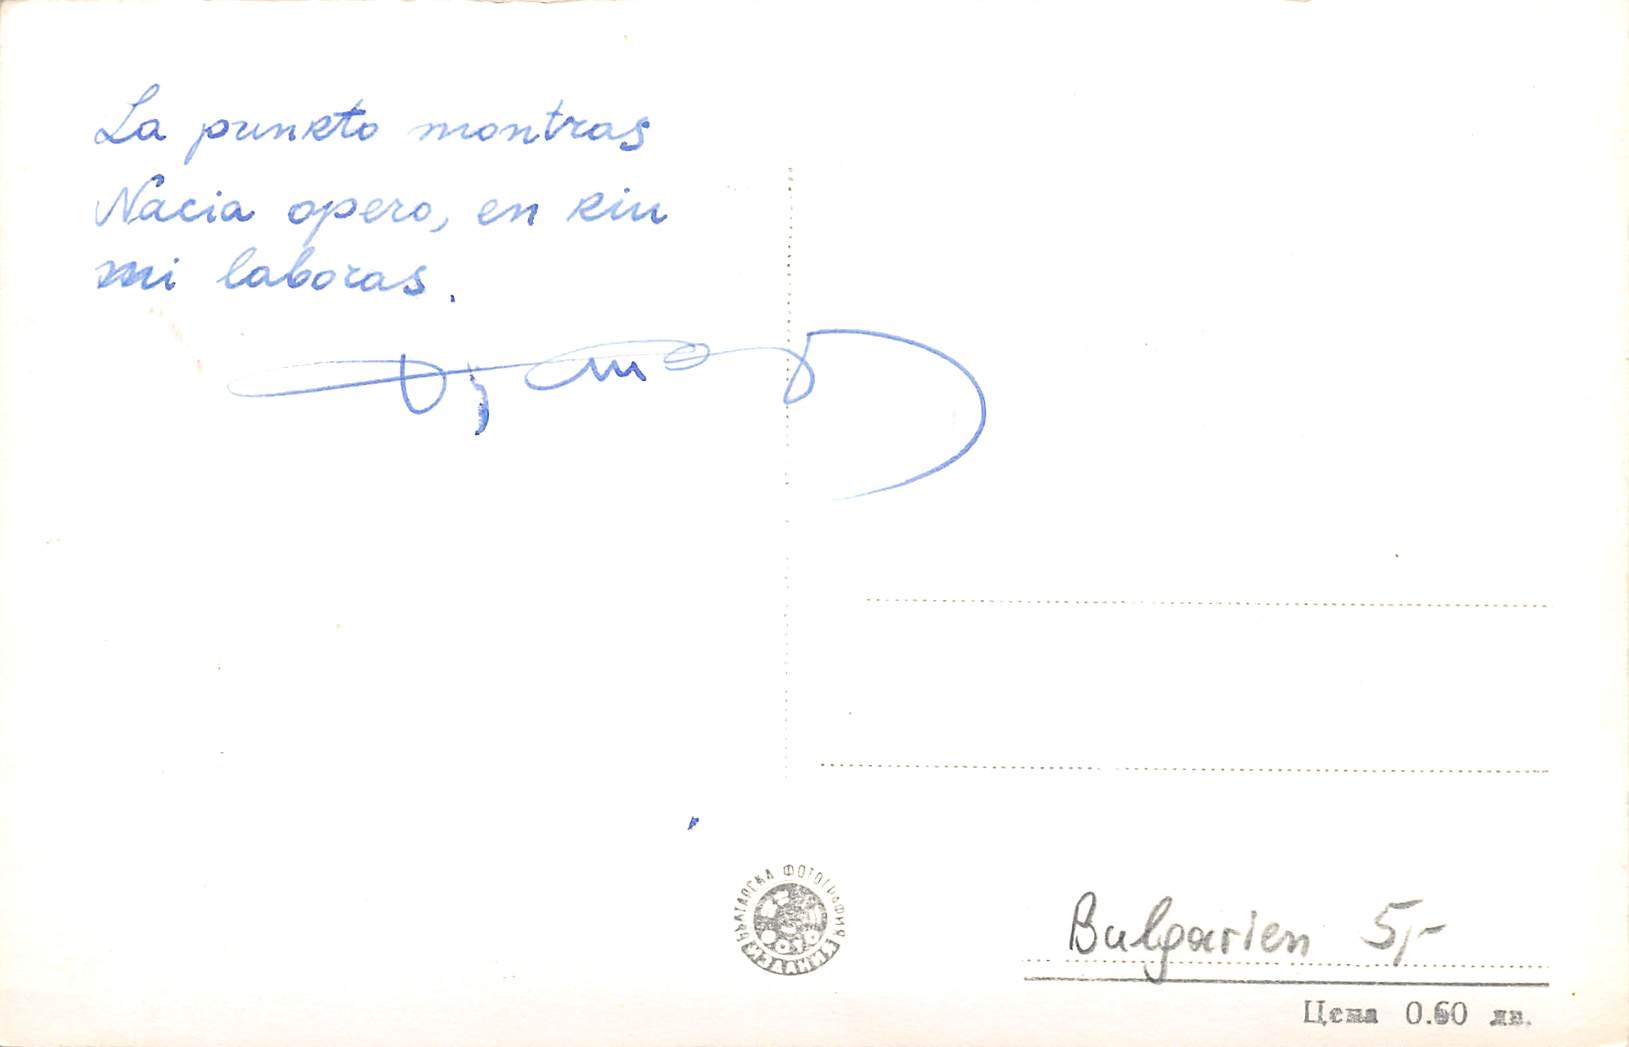 La punkto montras
Nacia opero, en kiu
mi laboras.
БЪЛГАРСКА ФОТОГРАФИЯ
ИЗДАНИЯ
Bulgarien 5,-
Цена 0.60 лв.